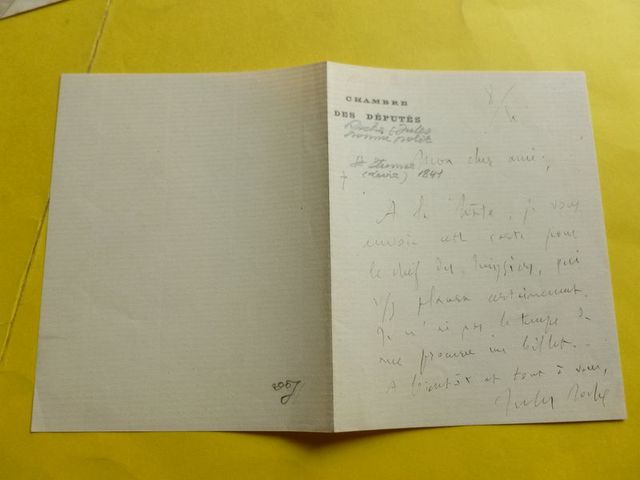 CHAMBRE
DES DÉPUTÉS
Roche Jules
homme polit
St Etienne
(Loire) 1841
Mon cher ami,
A la hâte, je vous
envoie cette carte pour
le chef des, qui
placera certainement.
Je n'ai pas le temps de
me procurer un billet.
A bientôt et tout à vous,
Jules Roche